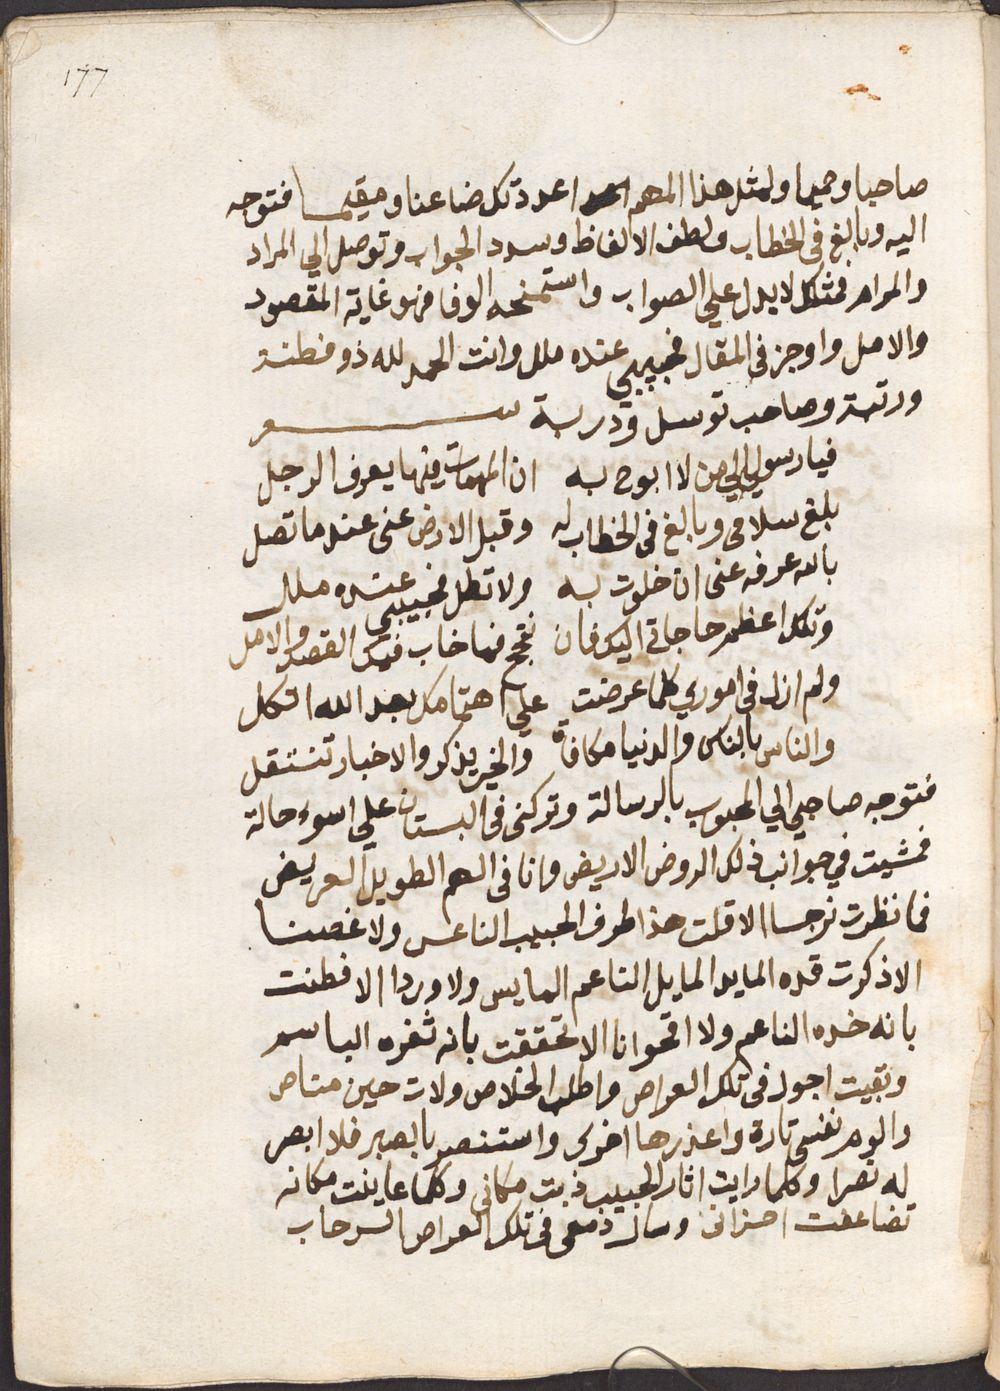 ١٧٧
صاحبا وحميا ولمثل هذا المهم اعددتك ضاعنا ومقيما فتوجه
اليه وبالغ في الخطاب ولطف الالفاظ وسدد الجواب وتوصل الي المراد
والمرام فمثلك لا يدل علي الصواب واستمنحه الوفا فهو غاية المقصود
والامل واوجز في المقال فحبيبي عنده ملل وانت الحمد لله ذو فطنة
ورتبة وصاحب توسل ودربة شعر
فيا رسولي الي من لا ابوح به ان المهمات فيها يعرف الرجل
بلغ سلامي وبالغ في الخطاب له وقبل الارض عني عندما تصل
بالله عرفه عني ان خلوت به ولا تطل فحبيبي عنده ملل
وتلك اعظم حاجاتي اليك فان نجح فما خاب فيك القصد والامل
ولم ازل في اموري كلما عرضت علي اهتمامك بعد الله اتكل
والناس بالناس والدنيا مكافاة والخير يذكر والاخبار تنتقل
فتوجه صاحبي الي المحبوب بالرسالة وتركني في البستان علي اسوء حالة
فمشيت في جوانب ذلك الروض الاريض وانا في الهم الطويل العريض
فما نظرت نرجسا الا قلت هذا طرف الحبيب الناعس ولا غصنا
الا ذكرت قده المايد المايل الناعم المايس ولا وردا الا فطنت
بانه خده الناعم ولا اقحوانا الا تحققت بانه ثغره الباسم
وبقيت اجول في تلك العراص واطلب الخلاص ولات حين مناص
والوم نفسي تارة واعذرها اخري واستنصر بالصبر فلا ابصر
له نصرا وكلما رايت اثار الحبيب ذبت مكاني وكلما عاينت مكانه
تضاعفت احزاني وسال دمعي في تلك العراص الرحاب